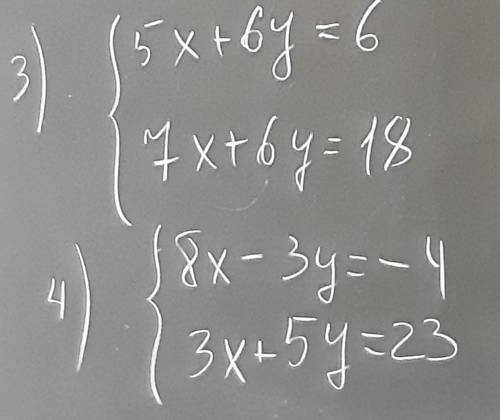 3) { 5x+6y=6
7x+6y=18
4) { 8x-3y=-4
3x+5y=23